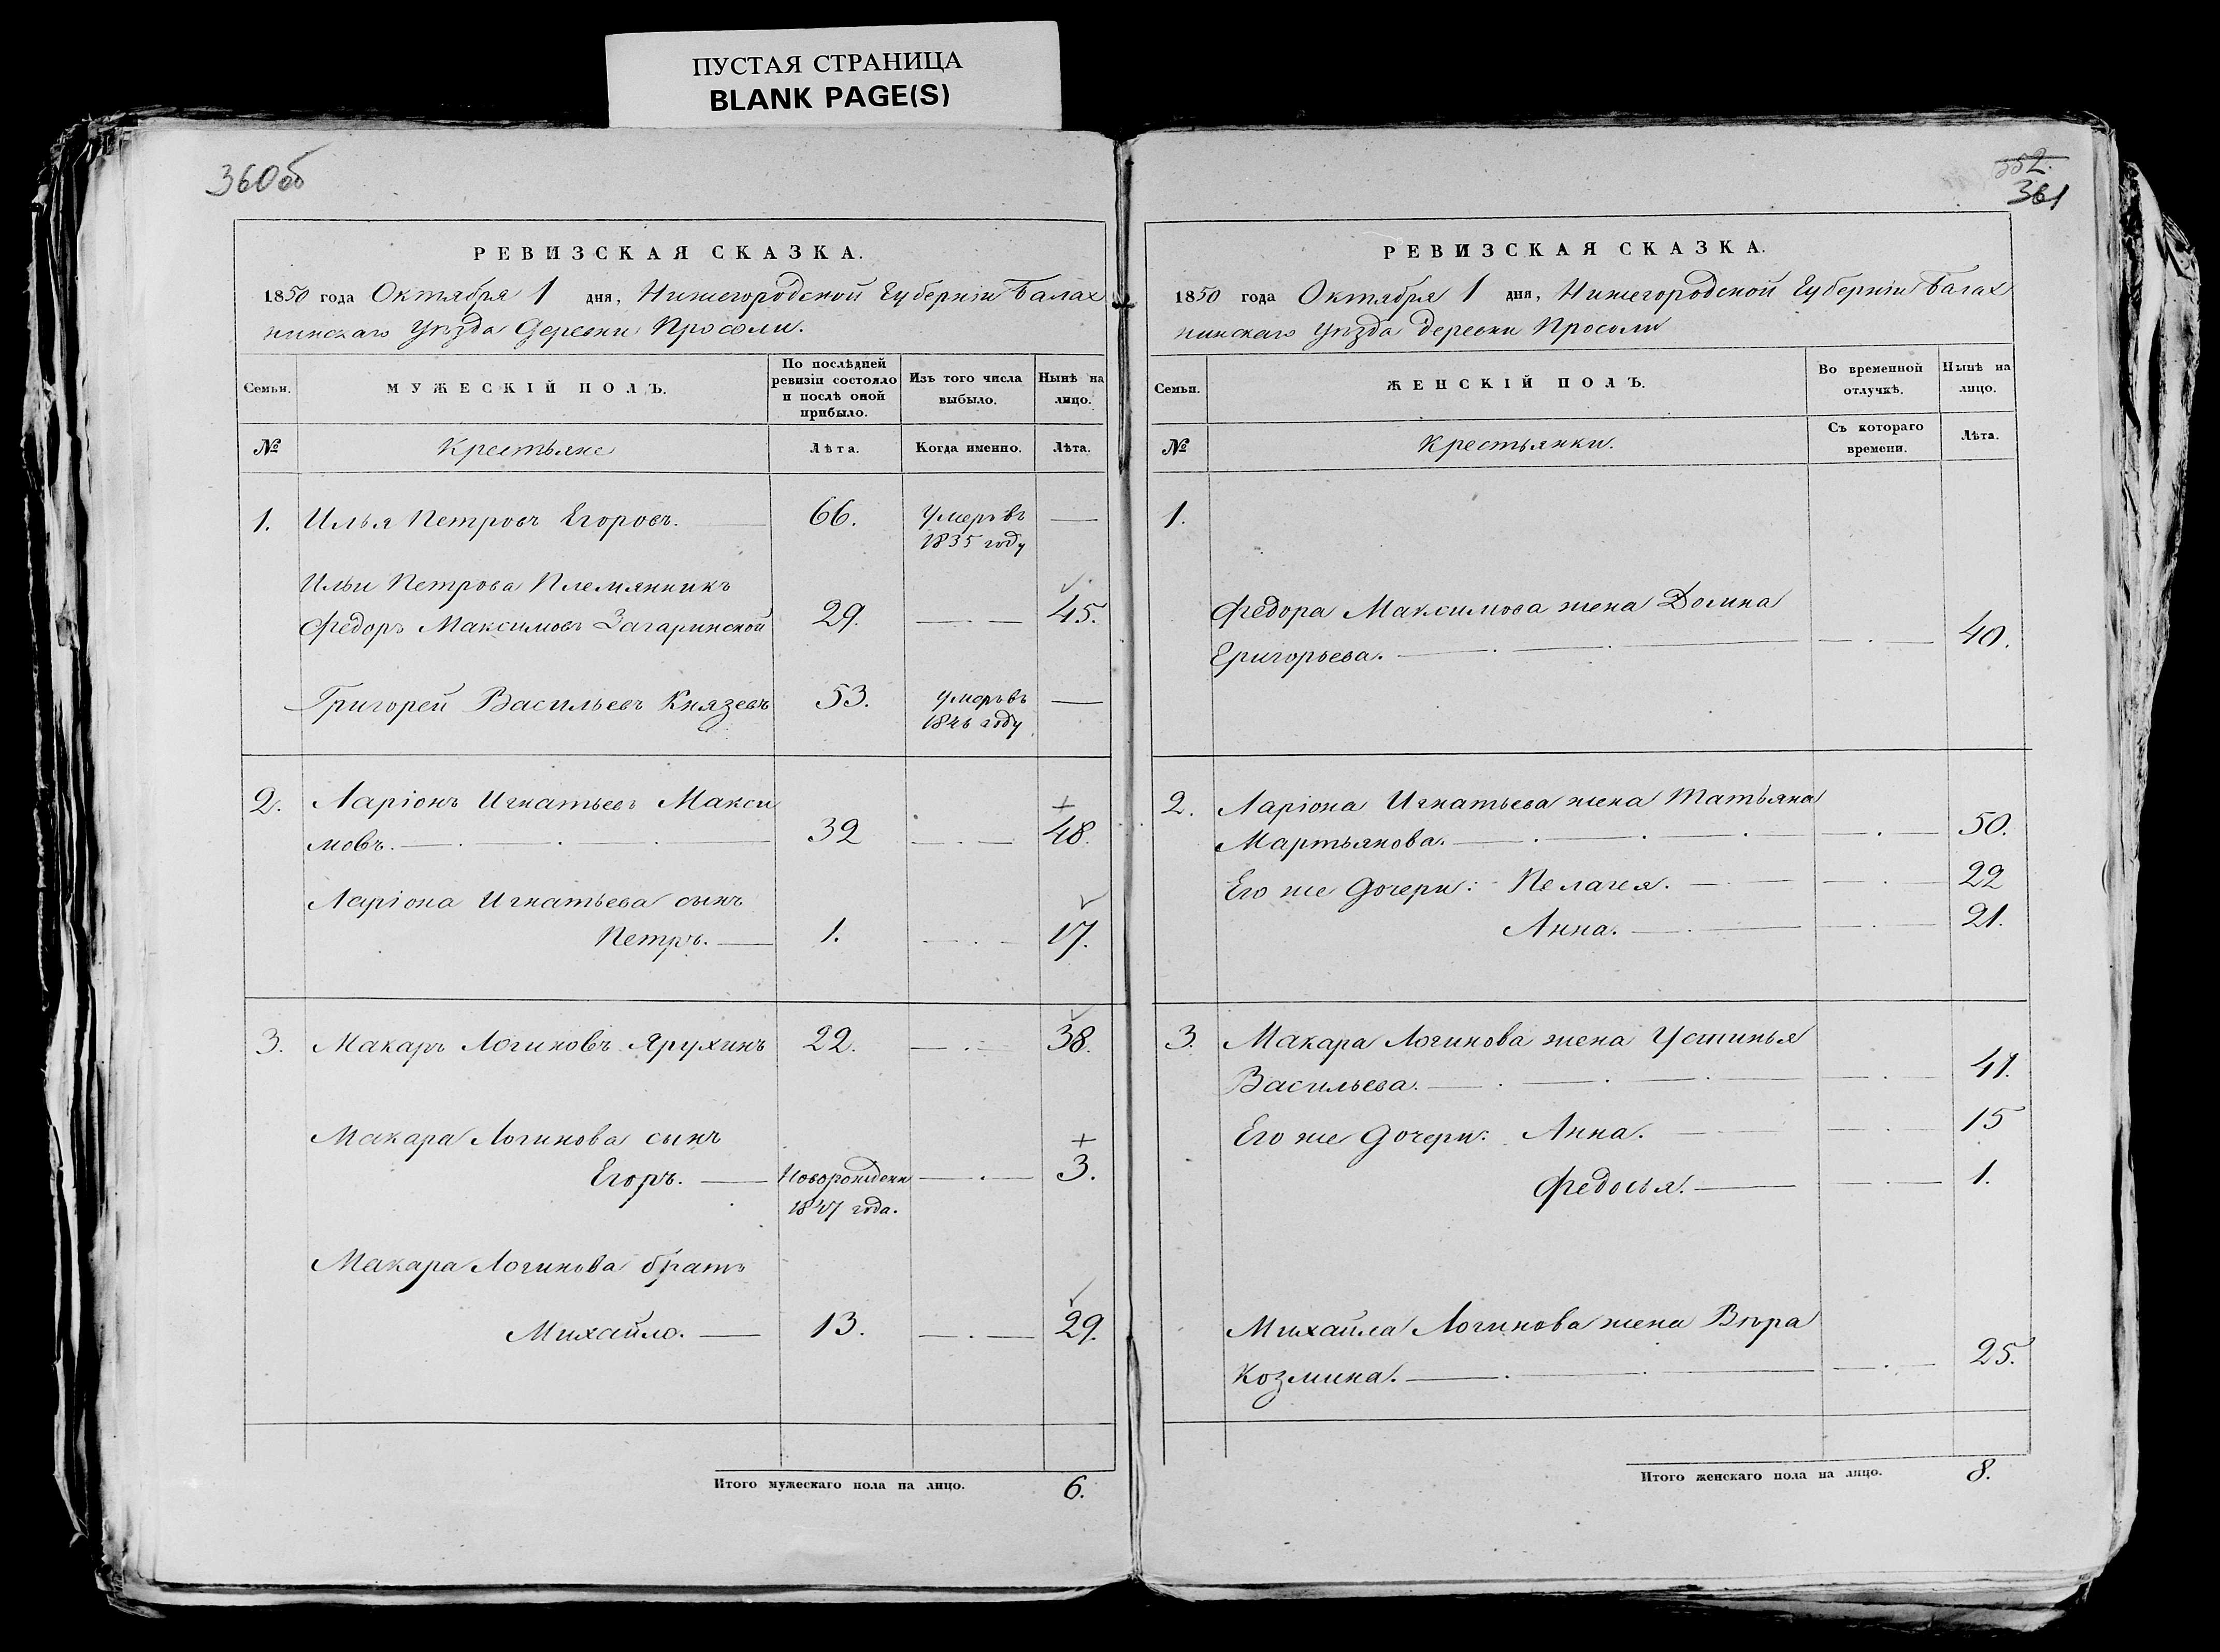 ПУСТАЯ СТРАНИЦА
BLANK PAGE(S)
360об
РЕВИЗСКАЯ СКАЗКА.
1850 года Октября 1 дня, Нижегородской Губерніи Балах
нинскаго Уѣзда Деревни Просоли.
Семьи. МУЖЕСКІЙ ПОЛЪ. По послѣдней ревизіи состояло и послѣ оной прибыло. Изъ того числа выбыло. Нынѣ на лицо.
№ Крестьяне Лѣта. Когда именно. Лѣта.
1. Илья Петровъ Егоровъ. 66. Умеръ въ 1835 году —
Ильи Петрова Племянникъ
Федоръ Максимовъ Загаринской 29. — 45.
Григорей Васильевъ Князевъ 53. Умеръ въ 1846 году —
2. Ларіонъ Игнатьевъ Макси
мовъ. 32 — 48.
Ларіона Игнатьева сынъ
Петръ. — 1. — 17.
3. Макаръ Логиновъ Ярухинъ 22. — 38.
Макара Логинова сынъ
Егоръ. — Новорожден 1847 года. — 3.
Макара Логинова братъ
Михайло. — 13. — 29.
Итого мужескаго пола на лицо. 6.
352.
361
РЕВИЗСКАЯ СКАЗКА.
1850 года Октября 1 дня, Нижегородской Губерніи Балах
нинскаго Уѣзда деревни Просоли
Семьи. ЖЕНСКІЙ ПОЛЪ. Во временной отлучкѣ. Нынѣ на лицо.
№ Крестьянки. Съ котораго времени. Лѣта.
1.
Федора Максимова жена Домна
Григорьева. — 40.
2. Ларіона Игнатьева жена Татьяна
Мартьянова. — 50.
Его же Дочери: Пелагея. — 22
Анна. — 21.
3. Макара Логинова жена Устинья
Васильева. — 41.
Его же Дочери: Анна. — 15
Федосья. — 1.
Михайла Логинова жена Вѣра
Козмина. — 25.
Итого женскаго пола на лицо. 8.